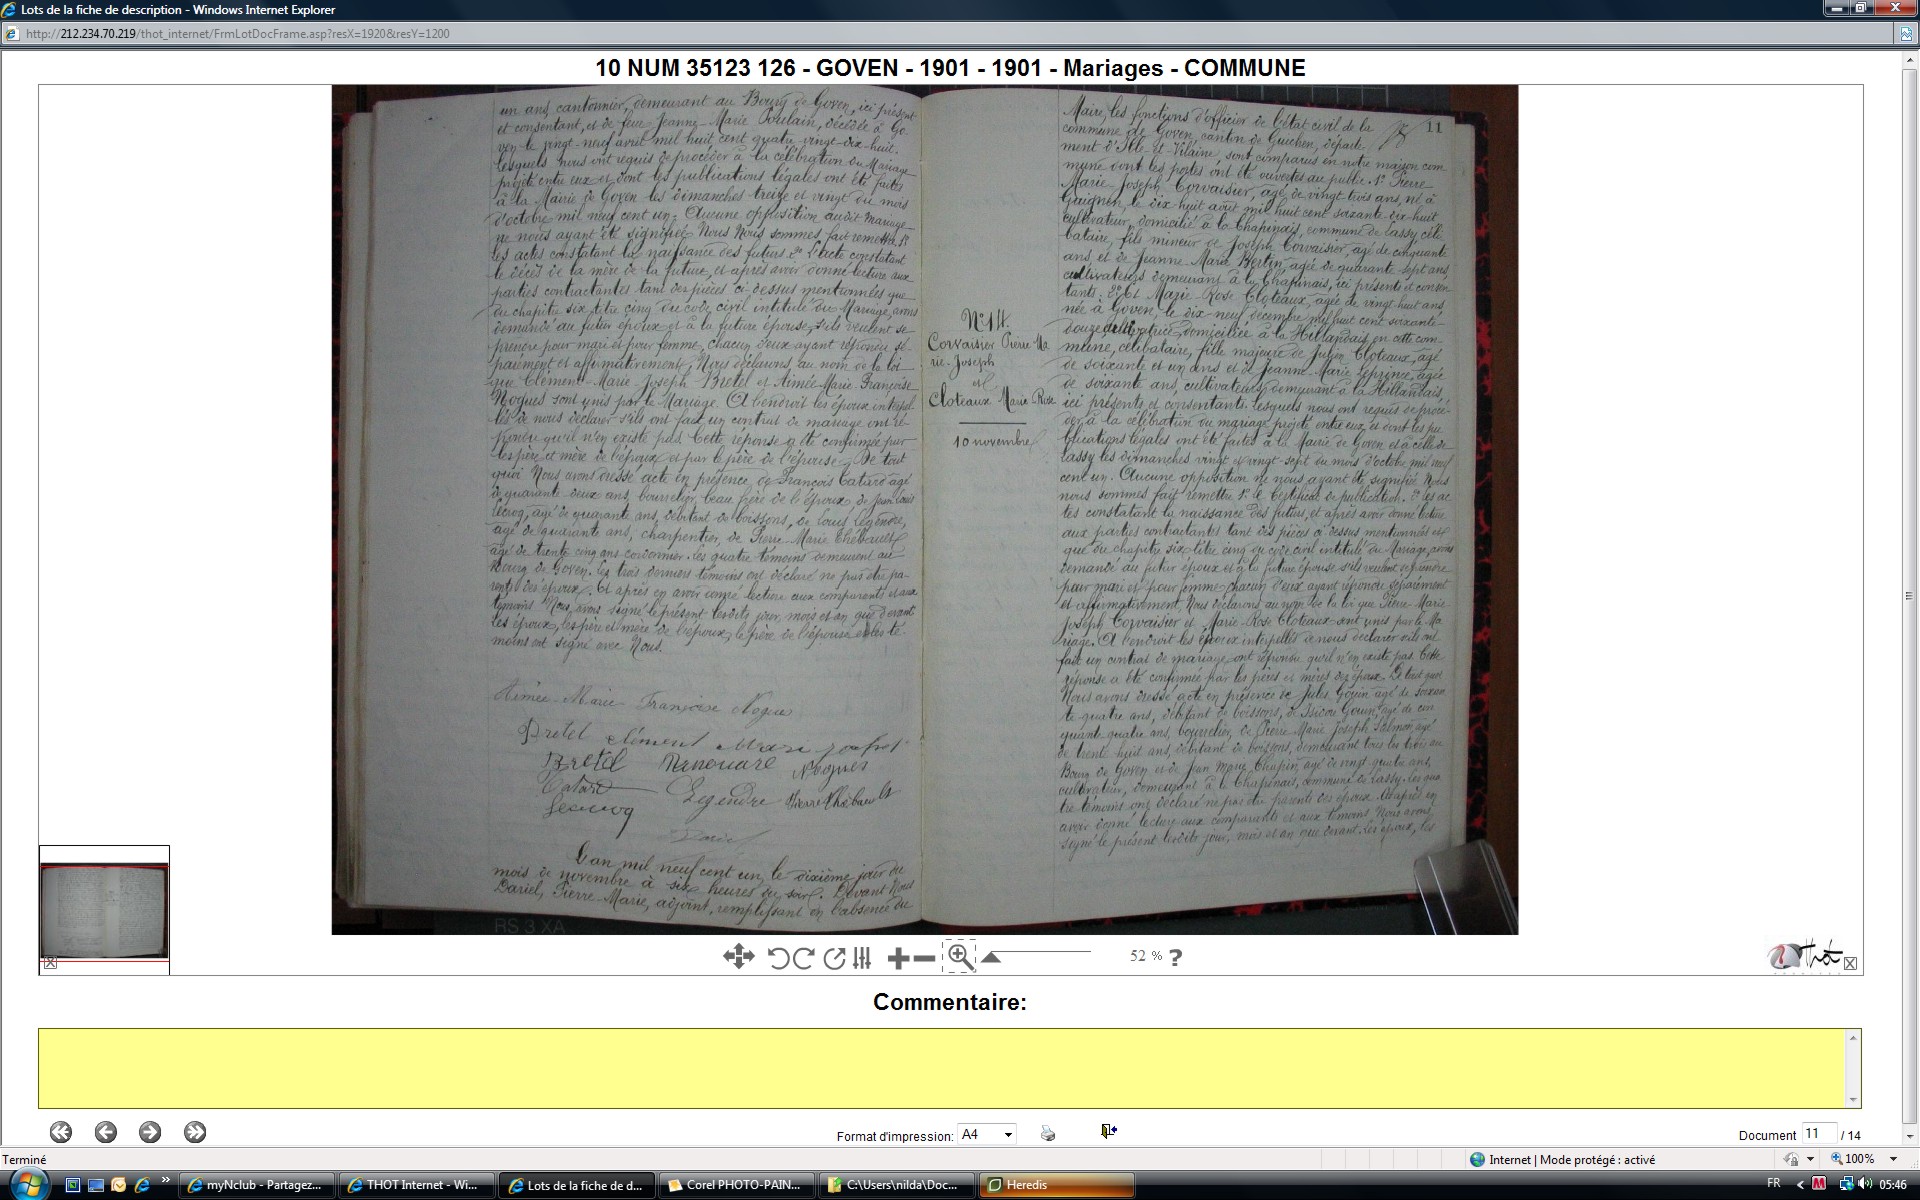 Lots de la fiche de description - Windows Internet Explorer
http://212.234.70.219/thot_internet/FrmLotDocFrame.asp?resX=1920&resY=1200
10 NUM 35123 126 - GOVEN - 1901 - 1901 - Mariages - COMMUNE
un ans, cantonnier, demeurant au Bourg de Goven, ici présent
et consentant, et de feue Jeanne-Marie Poulain, décédée à Go-
ven le vingt-neuf avril mil huit cent quatre-vingt-dix-huit.
Lesquels nous ont requis de procéder à la célébration du Mariage
projeté entre eux et dont les publications légales ont été faites
à la Mairie de Goven les dimanches treize et vingt du mois
d'octobre mil neuf cent un. Aucune opposition audit mariage
ne nous ayant été signifiée Nous Nous sommes fait remettre 1º
les actes constatant la naissance des futurs 2º L'acte constatant
le décès de la mère de la future, et après avoir donné lecture aux
parties contractantes tant des pièces ci-dessus mentionnées que
du chapitre six, titre cinq du code civil intitulé du Mariage, avons
demandé au futur époux et à la future épouse s'ils veulent se
prendre pour mari et pour femme, chacun d'eux ayant répondu sé-
parément et affirmativement, Nous déclarons au nom de la loi
que Clément-Marie-Joseph Bretel et Aimée-Marie-Françoise
Nogues sont unis par le Mariage. A l'endroit les époux interpel-
lés de nous déclarer s'ils ont fait un contrat de mariage ont ré-
pondu qu'il n'en existe pas. Cette réponse a été confirmée par
les père et mère de l'époux et par le père de l'épouse. De tout
quoi Nous avons dressé acte en présence de François Catard âgé
de quarante deux ans, bourrelier, beau frère de l'époux, de Jean Louis
Lecroq, âgé de quarante ans, débitant de boissons, de Louis Legendre,
âgé de quarante ans, charpentier, de Pierre-Marie Thébault
âgé de trente cinq ans cordonnier. Les quatre témoins demeurent au
Bourg de Goven. Les trois derniers témoins ont déclaré ne pas être pa-
rents des époux. Et après en avoir donné lecture aux comparants et aux
témoins Nous avons signé le présent lesdits jour, mois et an que devant
Les époux, les père et mère de l'époux, le père de l'épouse et les té-
moins ont signé avec Nous.
Aimée Marie Françoise Nogues
Bretel Clément Marie Joseph
Bretel Nogues
Catard Legendre Pierre Thébault
Lecrocq
Dariel
L'an mil neuf cent un, le dixième jour du
mois de novembre à six heures du soir. Devant Nous
Dariel, Pierre-Marie, adjoint, remplissant en l'absence du
Nº 14.
Corvaisier Pierre Ma
rie-Joseph
et
Cloteaux Marie-Rose
10 novembre
11
Maire, les fonctions d'officier de l'état civil de la
commune de Goven, canton de Guichen, départe-
ment d'Ille-et-Vilaine, sont comparus en notre maison com
mune dont les portes ont été ouvertes au public. 1º Pierre
Marie-Joseph Corvaisier, âgé de vingt trois ans, né à
le dix huit août mil huit cent soixante-dix-huit
cultivateur, domicilié à la Chapinais, commune de Lassy, céli-
bataire, fils mineur de Joseph Corvaisier, âgé de cinquante
ans et de Jeanne-Marie Bertin, âgée de quarante-sept ans,
cultivateurs demeurant à la Chapinais, ici présents et consen
tants. 2º Et Marie-Rose Cloteaux, âgée de vingt-huit ans
née à Goven, le dix-neuf décembre mil huit cent soixante-
douze, cultivatrice, domiciliée à la Hillandais, en cette com-
mune, célibataire, fille majeure de Julien Cloteaux, âgé
de soixante et un ans et de Jeanne-Marie Leprince, âgée
de soixante ans, cultivateurs demeurant à la Hillandais,
ici présents et consentants. Lesquels nous ont requis de procé-
der à la célébration du mariage projeté entre eux et dont les pu-
blications légales ont été faites à la Mairie de Goven et à celle de
Lassy les dimanches vingt et vingt-sept du mois d'octobre mil neuf
cent un. Aucune opposition ne nous ayant été signifiée Nous
nous sommes fait remettre 1º le certificat de publication. 2º les ac-
tes constatant la naissance des futurs, et après avoir donné lecture
aux parties contractantes tant des pièces ci-dessus mentionnées
que du chapitre six, titre cinq du code civil intitulé du Mariage, avons
demandé au futur époux et à la future épouse s'ils veulent se prendre
pour mari et pour femme chacun d'eux ayant répondu séparément
et affirmativement, Nous déclarons au nom de la loi que Pierre-Marie-
Joseph Corvaisier et Marie-Rose Cloteaux sont unis par le Ma-
riage. A l'endroit les époux interpellés de nous déclarer s'ils ont
fait un contrat de mariage ont répondu qu'il n'en existe pas. Cette
réponse a été confirmée par les pères et mères des époux. De tout quoi
Nous avons dressé acte en présence de Jules Gouin âgé de soixan
te quatre ans, débitant de boissons, de Isidore Gouin, âgé de cin
quante quatre ans, bourrelier, de Pierre Marie Joseph Salmon âgé
de trente huit ans, débitant de boissons, demeurant tous les trois au
Bourg de Goven et de Jean Marie Chapin âgé de vingt quatre ans,
cultivateur, demeurant à la Chapinais, commune de Lassy. Les qua
tre témoins ont déclaré ne pas être parents des époux. Et après en
avoir donné lecture aux comparants et aux témoins Nous avons
signé le présent lesdits jour, mois et an que devant. Les époux, les
RS 3 XA
52 % ?
Thot
Commentaire:
Format d'impression: A4
Document 11 / 14
Terminé
Internet | Mode protégé : activé
100%
myNclub - Partagez...
THOT Internet - Wi...
Lots de la fiche de d...
Corel PHOTO-PAIN...
C:\Users\nilda\Doc...
Heredis
FR
05:46